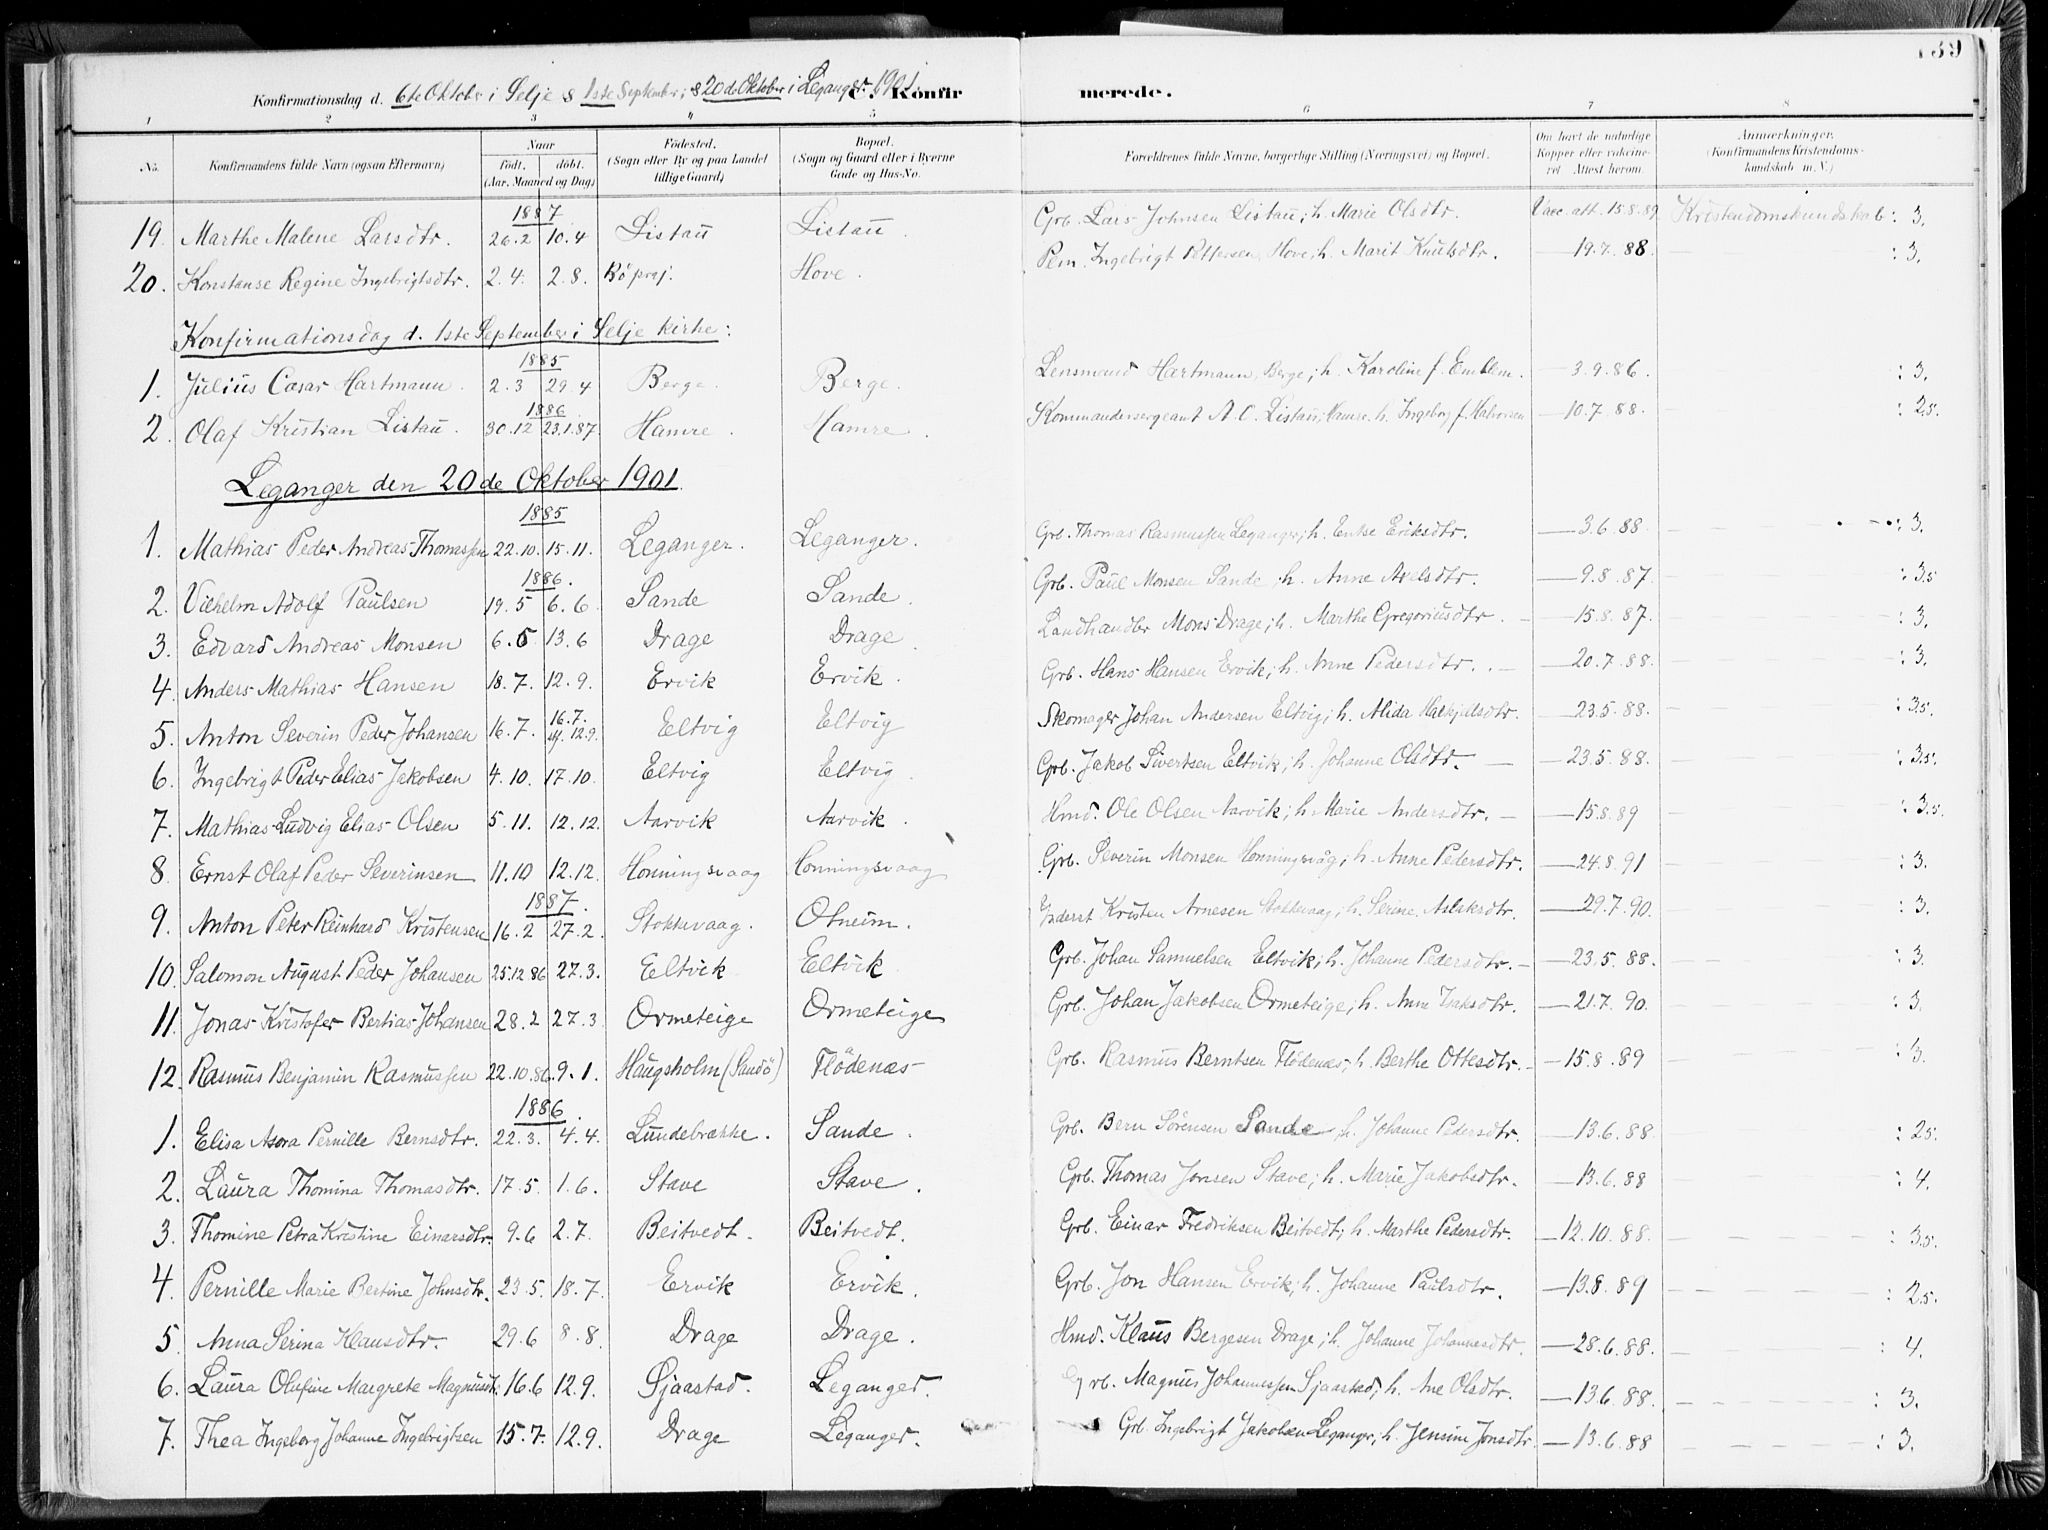 139
Konfirmationsdag d. 6te Oktober i Selje & 1ste September; & 20de Oktober i Leganger 1901. C. Konfirmerede.
1 2 3 4 5 6 7 8
No. Konfirmandens fulde Navn (ogsaa Efternavn) Naar født. døbt. (Aar, Maaned og Dag) Fødested. (Sogn eller By og paa Landet tillige Gaard) Bopæl. (Sogn og Gaard eller i Byerne Gade og Hus-No. Forældrenes fulde Navne, borgerlige Stilling (Næringsvei) og Bopæl. Om havt de naturlige Kopper eller vaccineret. Attest herom. Anmærkninger. (Konfirmandens Kristendomskundskab m. V.)
1887
19. Marthe Malene Larsdtr. 26.2 10.4 Listau Listau. Grb. Lars Johnsen Listau; h. Marie Olsdtr. Vacc. att. 15.8.89 Kristendomskundskab: 3.
20. Konstanse Regine Ingebrigtsdtr. 2.4. 2.8. Bö prgj. Hove. Pem. Ingebrigt Pettersen Hove; h. Marit Knutsdtr. — 19.7.88 — : 3.
Konfirmationsdag d. 1ste September i Selje kirke:
1885
1. Julius Cæsar Hartmann. 2.3 29.4 Berge. Berge. Lensmand Hartmann, Berge; h. Karoline f. Emblem. — 3.9.86. : 3.
1886
2. Olaf Kristian Listau. 30.12 23.1.87. Hamre. Hamre. Kommandersergeant A. C. Listau, Hamre. h. Ingeborg f. Halvorsen — 10.7.88. : 2.5.
Leganger den 20de Oktober 1901.
1885
1. Mathias Peder Andreas Thomassen 22.10. 15.11. Leganger. Leganger. Grb. Thomas Rasmussen Leganger; h. Eriksdtr. — 3.6.88 — : 3.
1886.
2. Vilhelm Adolf Paulsen 19.5 6.6. Sande Sande. Grb. Paul Monsen Sande; h. Anne Axelsdtr. — 9.8.87. — : 3.5
3. Edvard Andreas Monsen 6.5 13.6 Drage Drage. Landhandler Mons Drage; h. Marthe Gregoriusdtr. — 15.8.87. — : 3.
4. Anders Mathias Hansen 18.7. 12.9. Ervik Ervik. Grb. Hans Hansen Ervik; h. Anne Pedersdtr. — 20.7.88. — : 3.
5. Anton Severin Peder Johansen 16.7. 16.7. 12.9. Eltvig Eltvig Skomager Johan Andersen Eltvig; h. Alida — 23.5.88. — : 3.5.
6. Ingebrigt Peder Elias Jakobsen 4.10. 17.10. Eltvig Eltvig. Grb. Jakob Sivertsen Eltvik; h. Johanne Olsdtr. — 23.5.88. — : 3.5.
7. Mathias Ludvig Elias Olsen 5.11. 12.12. Aarvik Aarvik. Hmd. Ole Olsen Aarvik; h. Marie Andersdtr. — 15.8.89 — : 3.5.
8. Ernst Olaf Peder Severinsen 11.10 12.12. Honningsvaag Honningsvaag Grb. Severin Monsen Honningsvåg; h. Anne Pedersdtr. — 24.8.91 — : 3.
1887.
9. Anton Peter Reinhard Kristensen 16.2 27.2. Stokkevaag. Otneim. Inderst Kristen Arnesen Stokkevaag; h. Serine Aslaksdtr. — 29.7.90. — : 3.
10. Salomon August Peder Johansen 25.12.86 27.3. Eltvik Eltvik Grb. Johan Samuelsen Eltvik; h. Johanne Pedersdtr. — 23.5.88. — : 3.
11. Jonas Kristofer Bertias Johansen 28.2 27.3 Ormeteige Ormeteige Grb. Johan Jakobsen Ormeteige; h. Anne Isaksdtr. — 21.7.90. — : 3.
12. Rasmus Benjamin Rasmussen 22.10.86. 9.1. Haugsholm (Sandö) Flödenæs Grb. Rasmus Berntsen Flödenæs; h. Berthe Ottesdtr. — 15.8.89 — : 3.
1886.
1. Elisa Asora Pernille Bernsdtr. 22.3. 4.4. Lundebrække. Sande. Grb. Bern Sörensen Sande; h. Johanne Pedersdtr. — 13.6.88. — : 2.5.
2. Laura Thomina Thomasdtr. 17.5. 1.6. Stave Stave. Grb. Thomas Jonsen Stave; h. Marie Jakobsdtr. — 13.6.88 — : 4.
3. Thomine Petra Kristine Einarsdtr. 9.6 2.7. Beitvedt. Beitvedt. Grb. Einar Fredriksen Beitvedt; h. Marthe Pedersdtr. — 12.10.88. — : 3.5.
4. Pernille Marie Bertine Johnsdtr. 23.5. 18.7. Ervik Ervik. Grb. Jon Hansen Ervik; h. Johanne Paulsdtr. — 13.8.89 — : 2.5.
5. Anna Serina Klausdtr. 29.6 8.8. Drage Drage. Hmd. Klaus Bergesen Drage; h. Johanne Johannesdtr. — 28.6.88. — : 4.
6. Laura Olufine Margrete Magnusdtr. 16.6 12.9. Sjaastad. Leganger. Grb. Magnus Johannessen Sjaastad; h. Ane Olsdtr. — 13.6.88. — : 3.
7. Thea Ingeborg Johanne Ingebrigtsen 15.7. 12.9. Drage Leganger. Grb. Ingebrigt Jakobsen Leganger; h. Jensine Jonsdtr. — 13.6.88 — : 3.